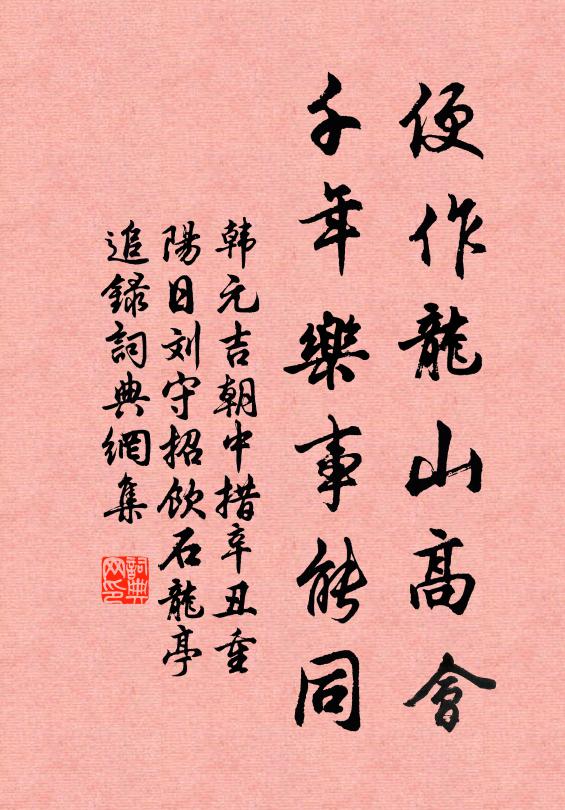 便作龍山高會
千年樂事能同
韩元吉朝中措辛丑重
陽日刘守招飲石龍亭
追録詞典網集
詞典
网印